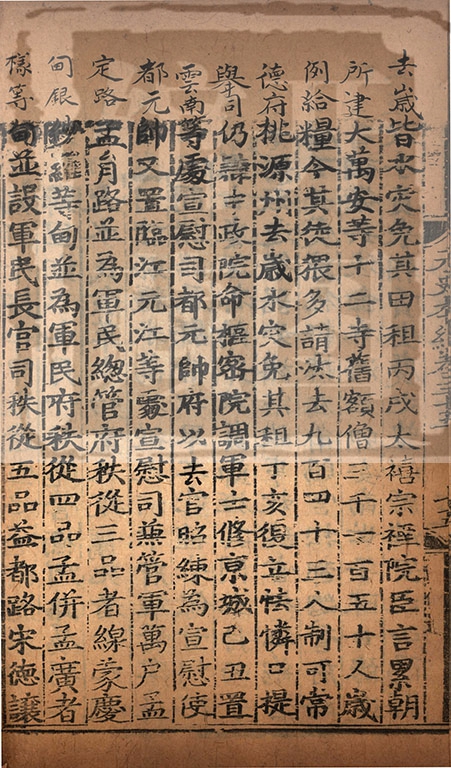 去歲皆水災免其田租丙戌太禧宗禋院臣言累朝
所建大萬安等十二寺舊額僧三千一百五十人歲
例給糧今其徒猥多請汰去九百四十三人制可常
德府桃源州去歲水災免其租丁亥復立怯憐口提
舉司仍隸士政院命樞密院調軍士修京城己丑置
雲南等處宣慰司都元帥府以去官昭練為宣慰使
都元帥又置臨江元江等處宣慰司兼管軍萬户孟
定路孟肙路並為軍民總管府秩從三品者線蒙慶
甸銀沙羅等甸並為軍民府秩從四品孟併孟廣者
樣等甸並設軍民長官司秩從五品益都路宋德讓